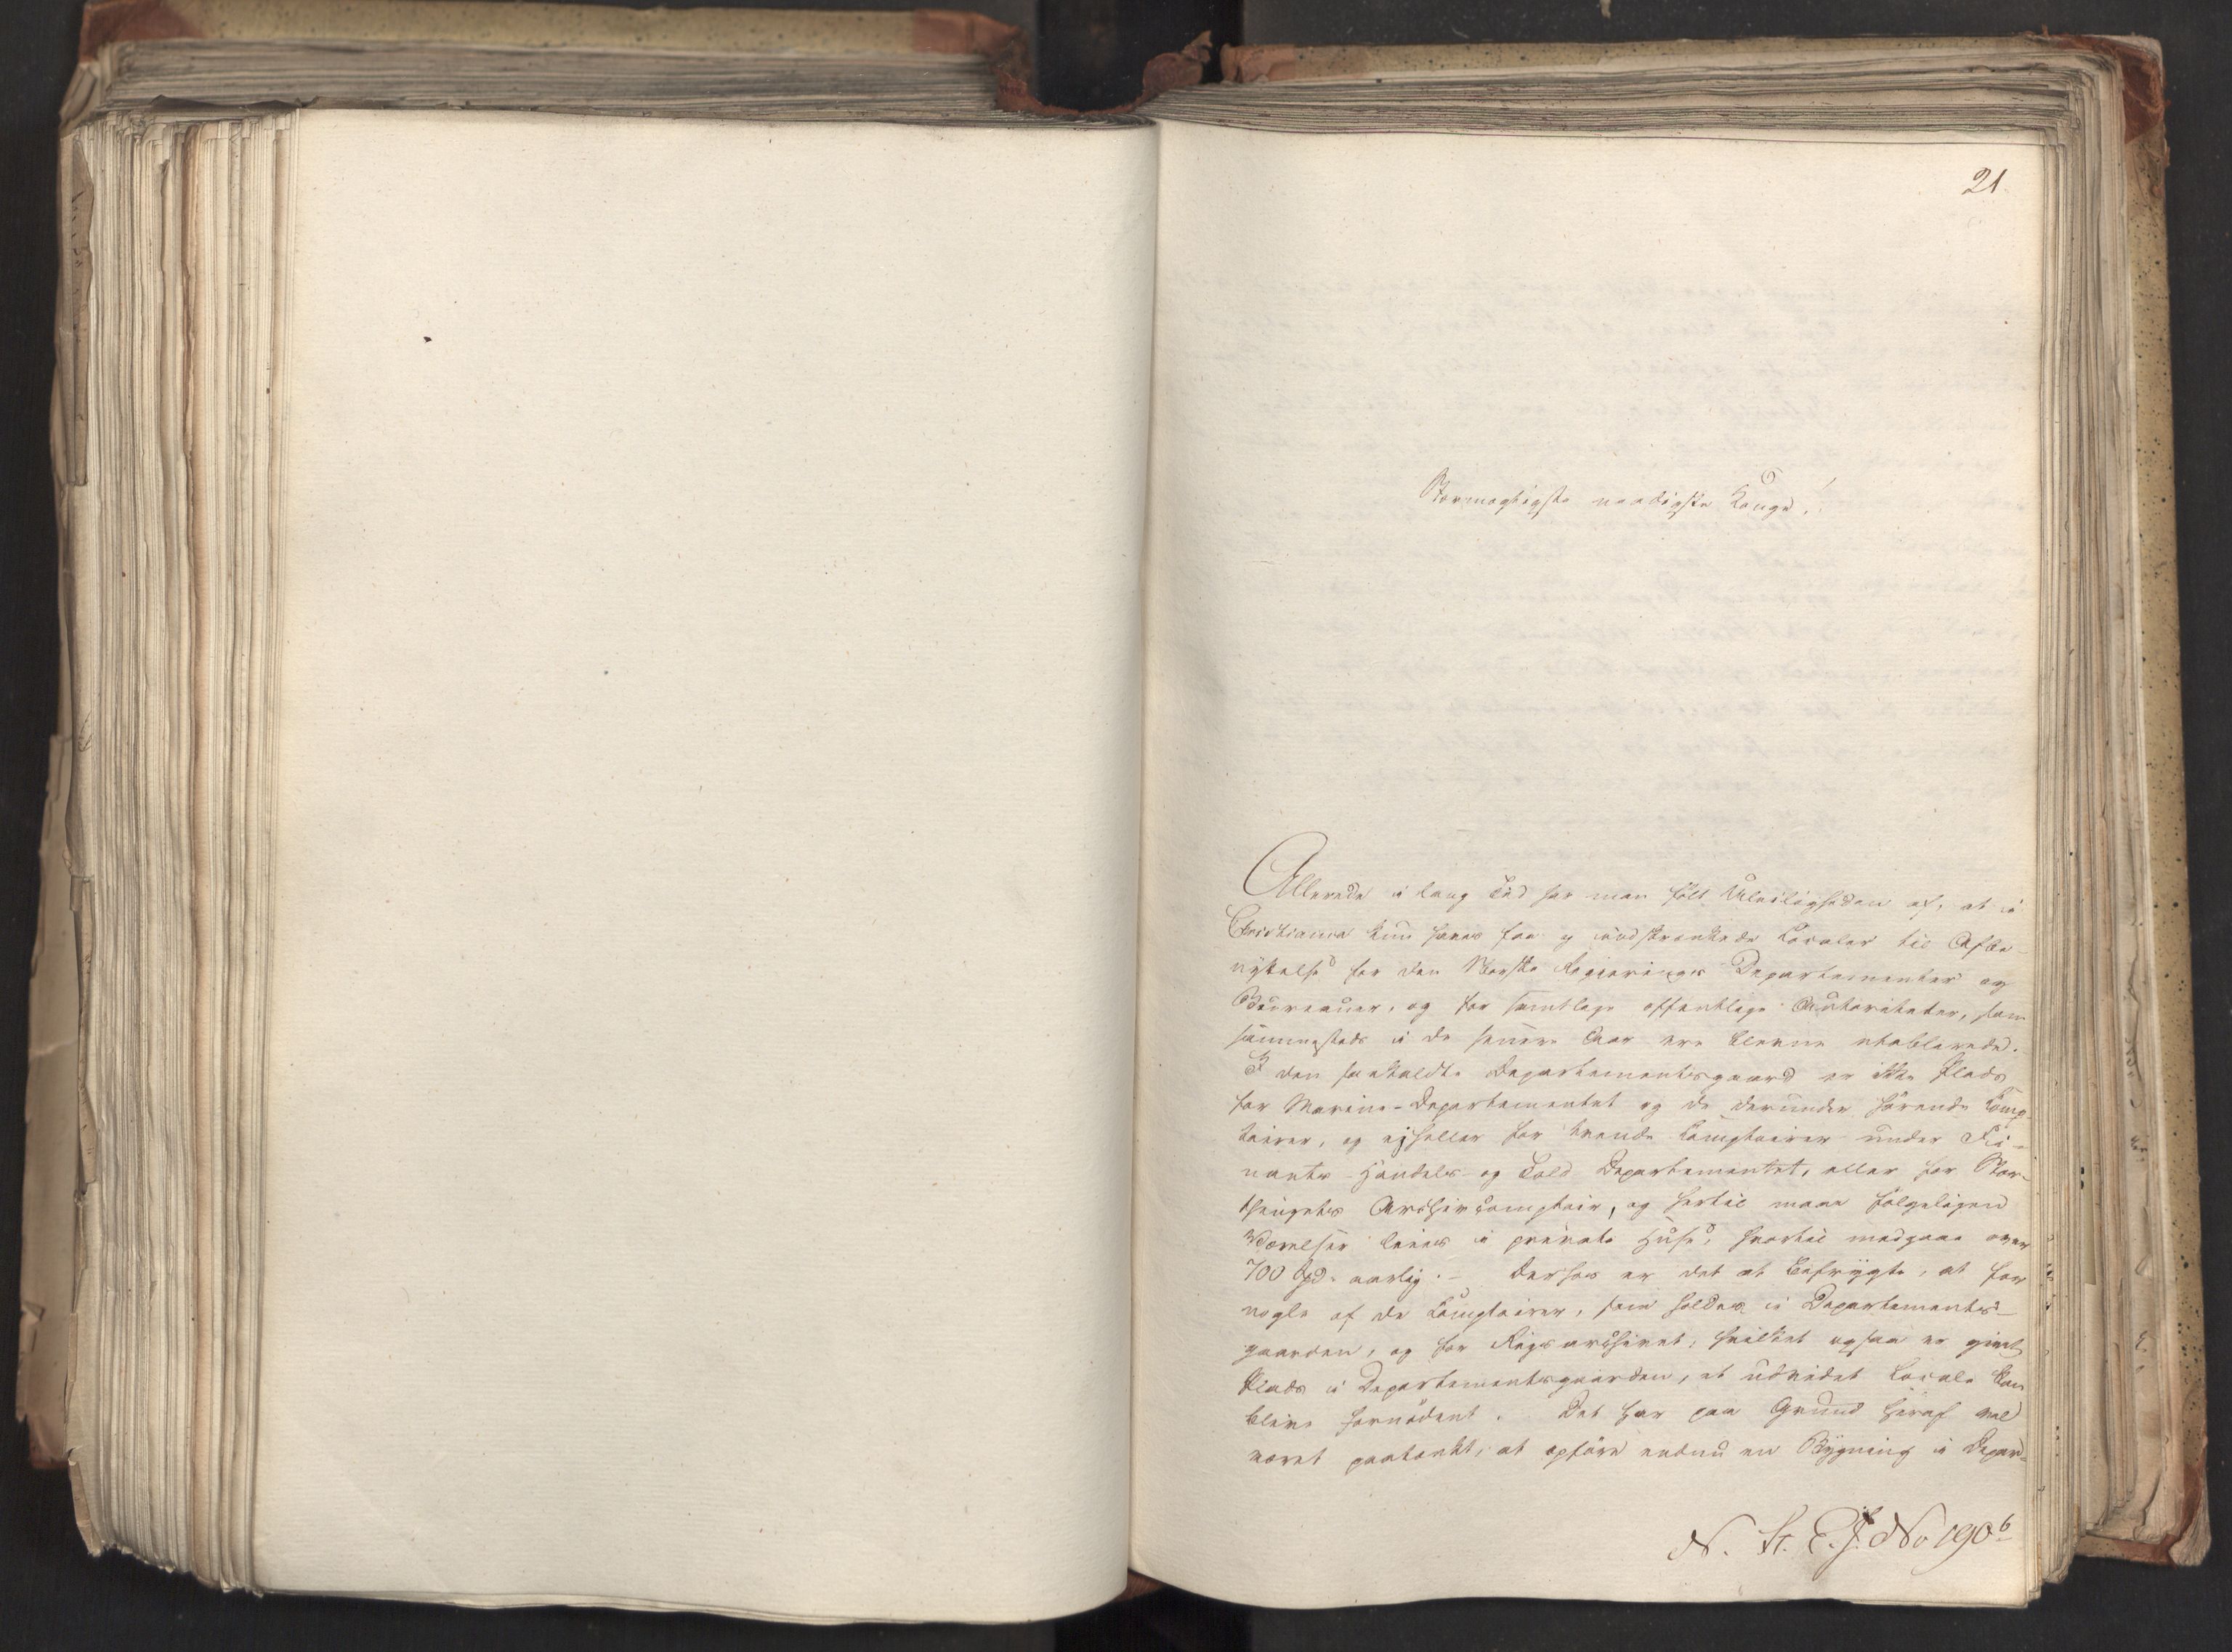 21.
Stormægtigste naadigste Konge!
Allerede i lang Tid har man følt Uleiligheden af, at i
Christiania kun haves faa og indskrænkede Localer til Afbe-
nyttelse for den Norske Regjerings Departementer og
Büreauer, og for samtlige offentlige Autoriteter, som
sammesteds i de senere Aar ere blevne etablerede.
I den saakaldte Departementsgaard er ikke Plads
for Marine-Departementet og de derunder hørende Comp-
toirer, og ejheller for trende Comptoirer under Fi-
nants- Handels- og Told Departementet, eller for Stor-
thingets Archivcomptoir, og hertil maae følgeligen
Værelser leies i private Huse, hvortil medgaae over
700 Spd. aarlig. – Derhos er det at befrygte, at for
nogle af de Comptoirer, som holdes i Departements-
gaarden, og for Rigsarchivet, hvilket ogsaa er givet
Plads i Departementsgaarden, et udvidet Locale kan
blive fornødent. Det har paa Grund heraf vel
været paatænkt, at opføre endnu en Bygning i Depar-
N. St. E. J. No 190 b